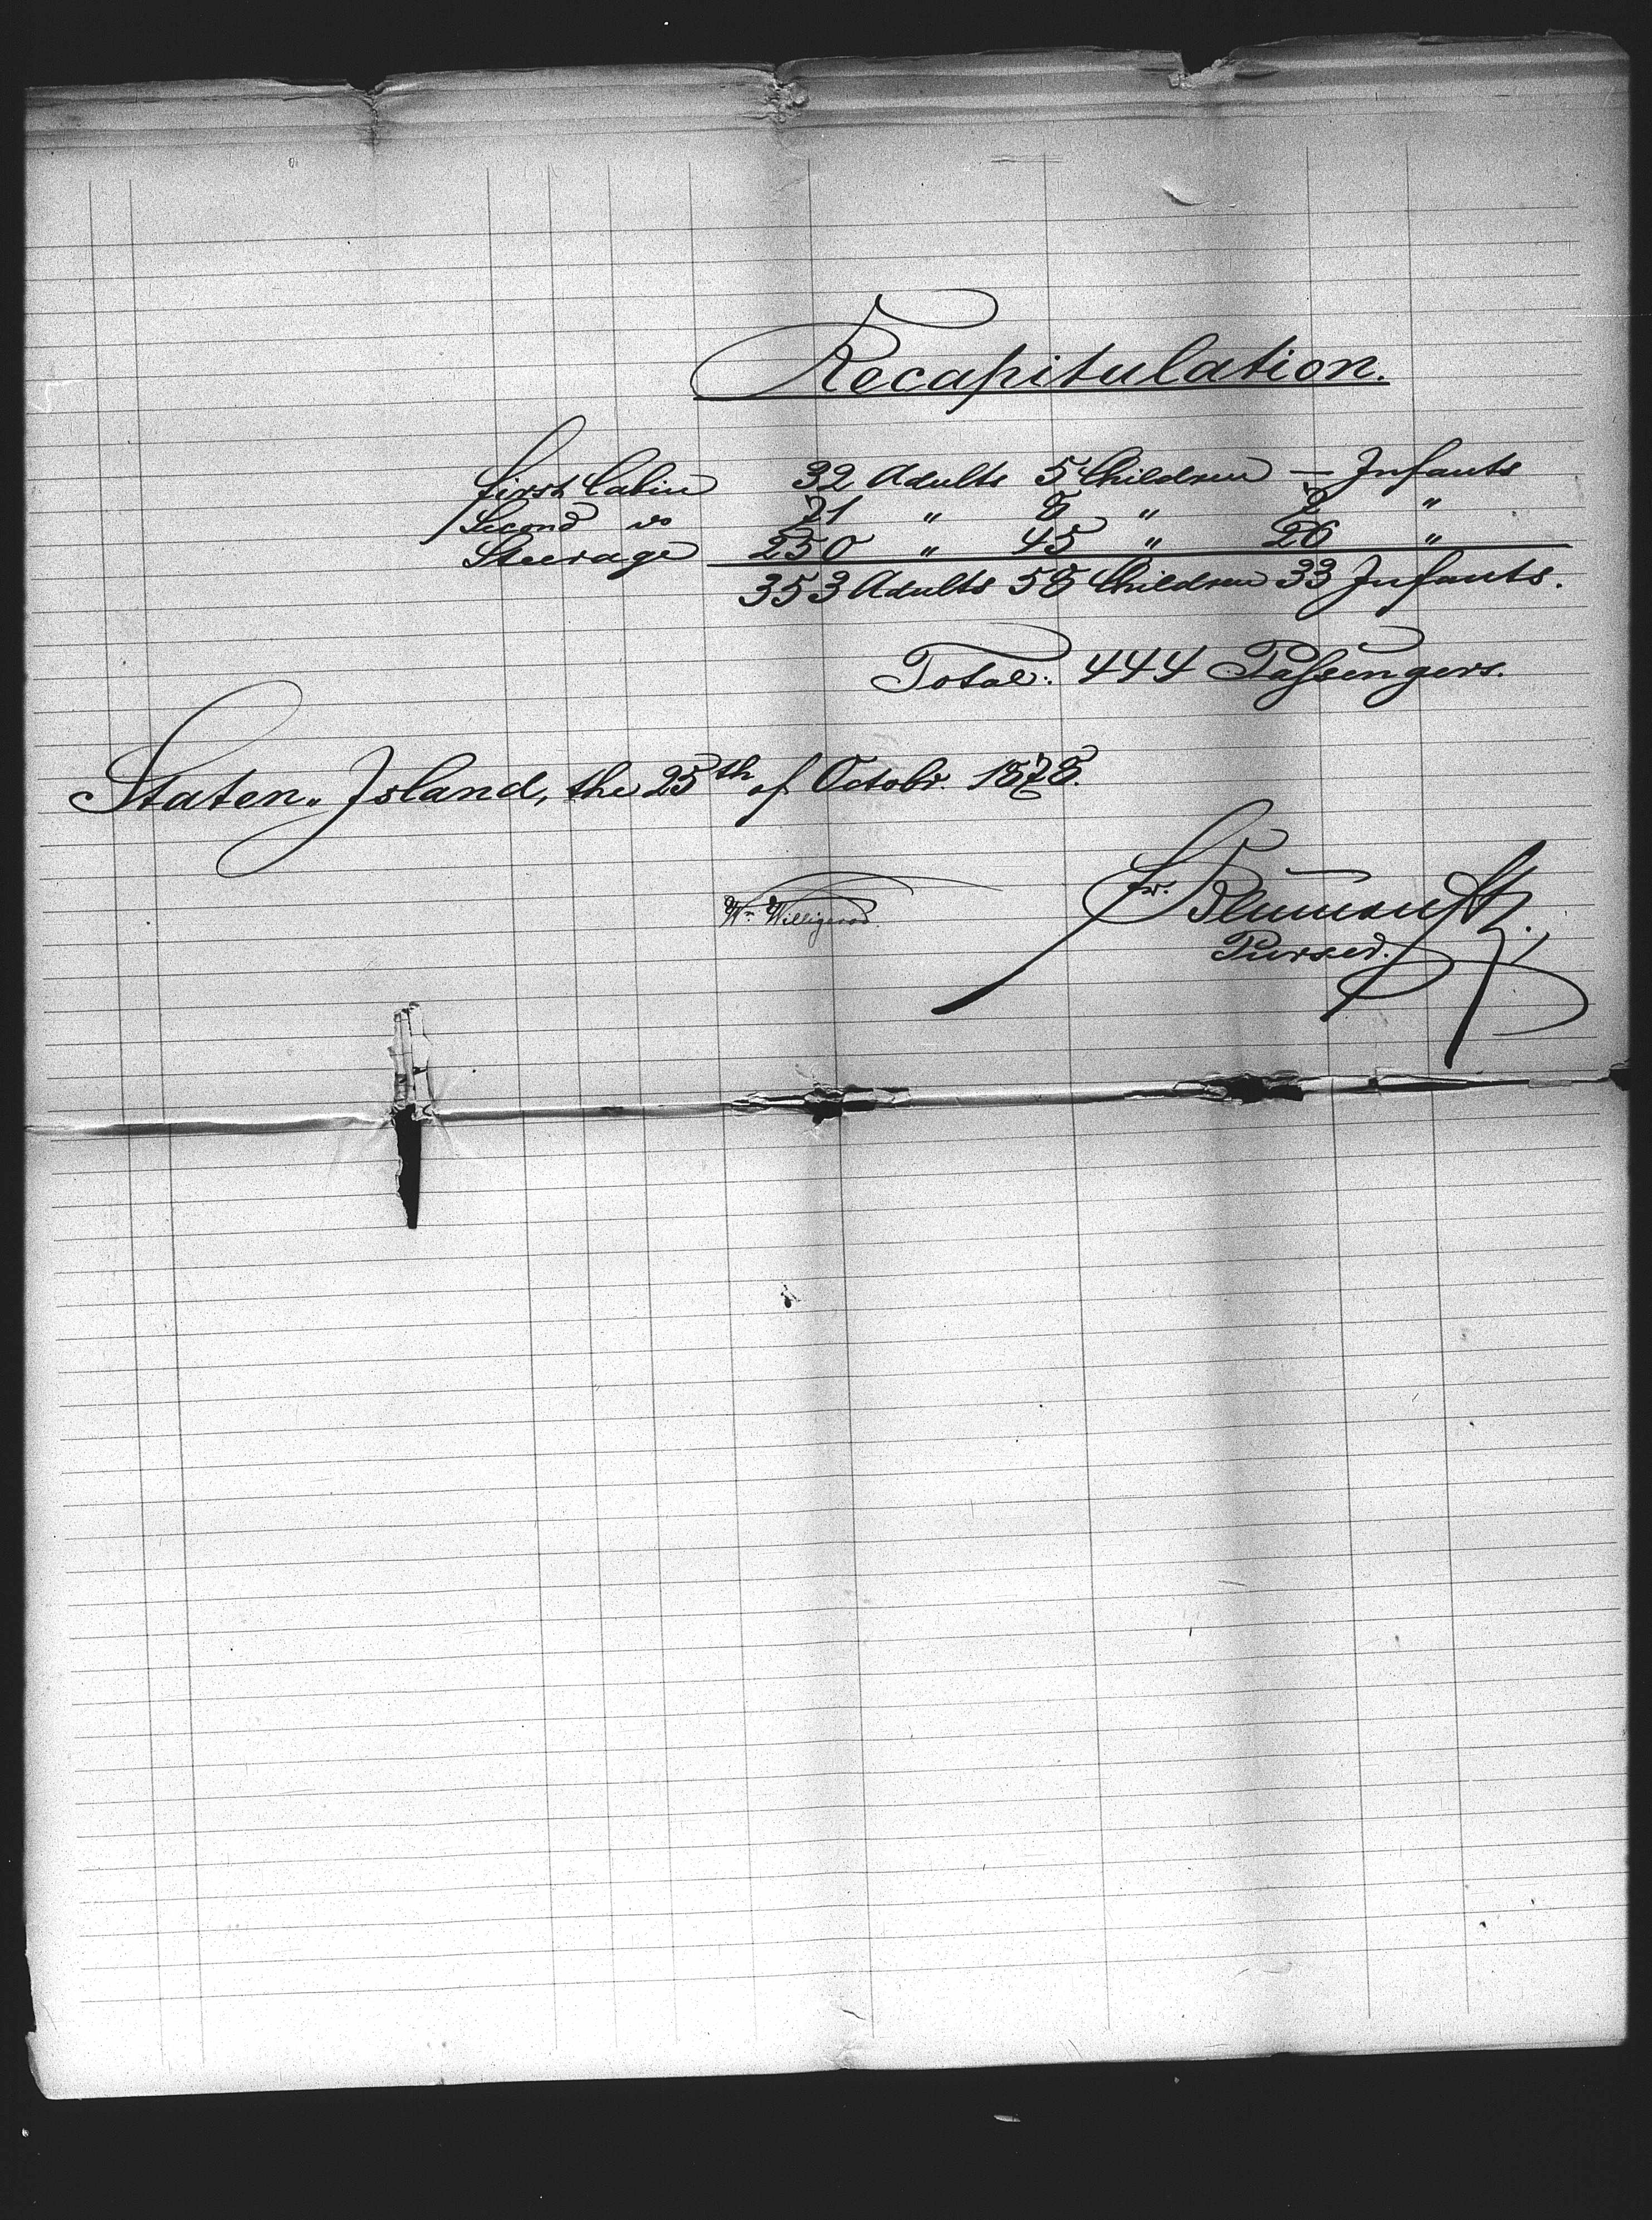 Recapitulation.
First Cabin 32 Adults 5 Children — Infants
Second do 71 " 8 " 7 "
Steerage 250 " 45 " 26 "
353 Adults 58 Children 33 Infants.
Total: 444 Passengers.
Staten Island, the 25th of Octobr. 1878.
Wm Willigerod.
Fr.
Purser.